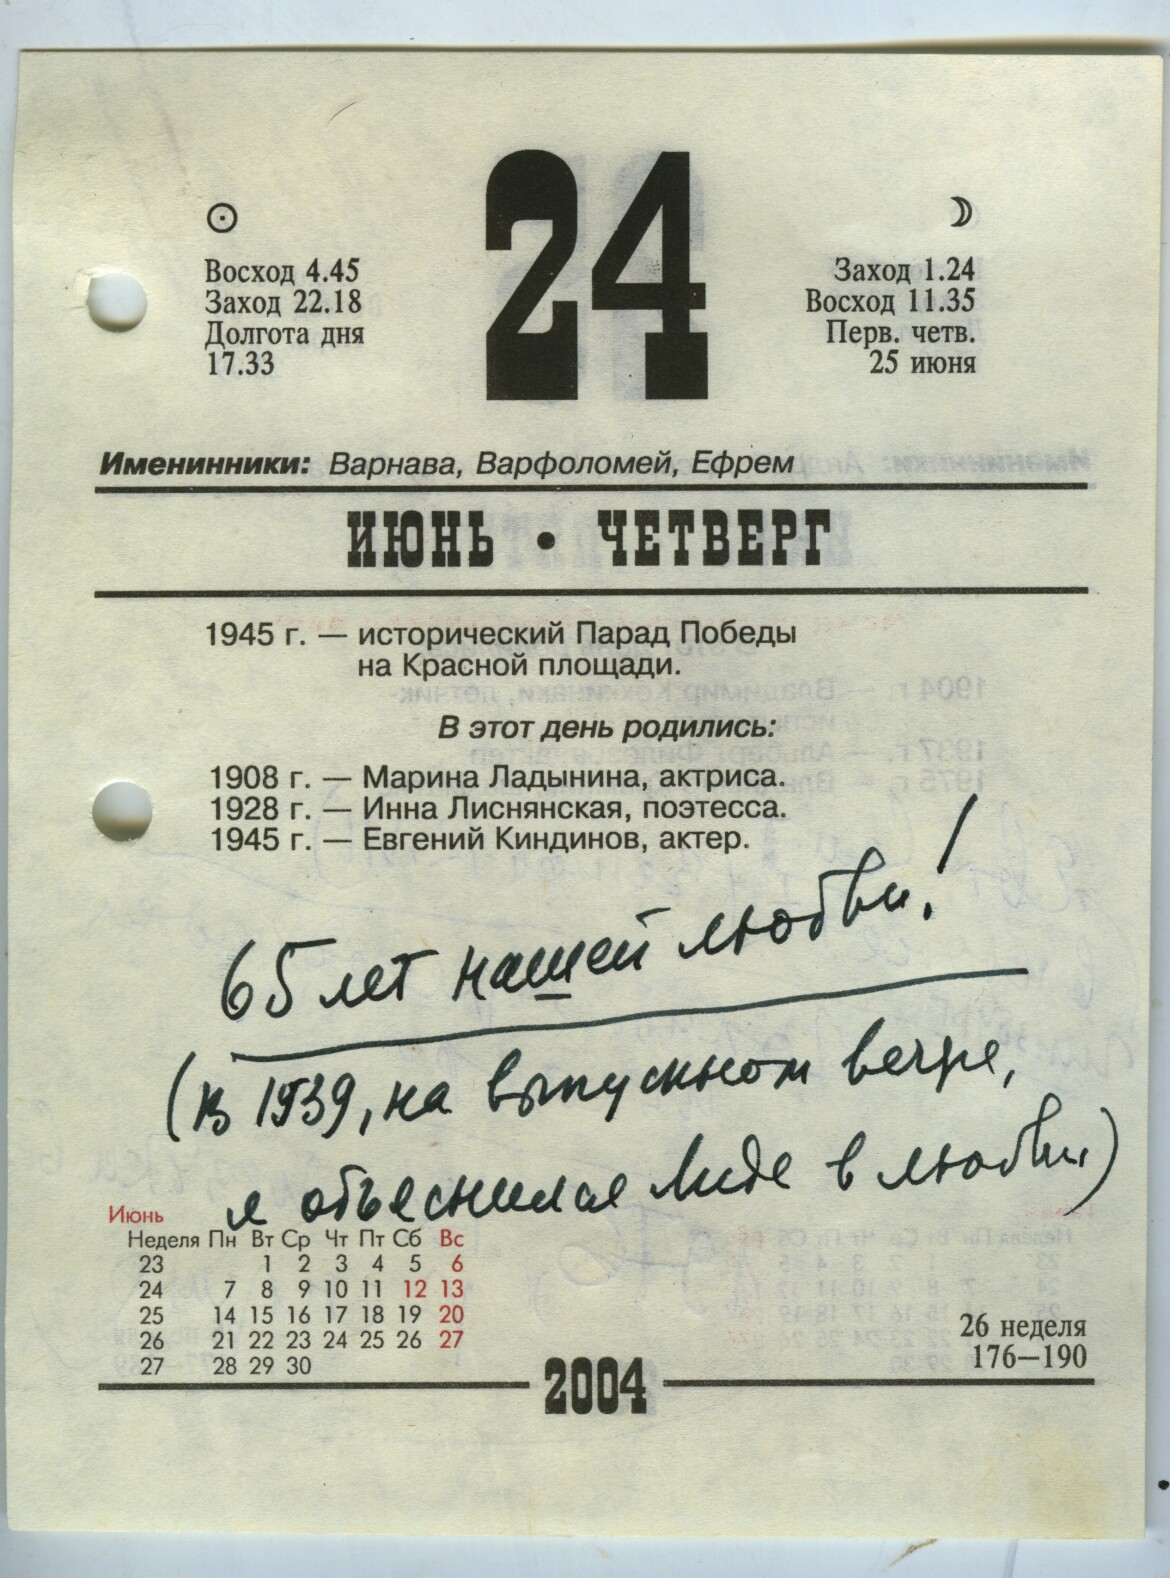 24
Восход 4.45
Заход 22.18
Долгота дня
17.33
Заход 1.24
Восход 11.35
Перв. четв.
25 июня
Именинники: Варнава, Варфоломей, Ефрем
ИЮНЬ • ЧЕТВЕРГ
1945 г. — исторический Парад Победы
на Красной площади.
В этот день родились:
1908 г. — Марина Ладынина, актриса.
1928 г. — Инна Лиснянская, поэтесса.
1945 г. — Евгений Киндинов, актер.
65 лет нашей любви!
(В 1939, на выпускном вечере,
я объяснился Лиде в любви)
Июнь
Неделя Пн Вт Ср Чт Пт Сб Вс
23 1 2 3 4 5 6
24 7 8 9 10 11 12 13
25 14 15 16 17 18 19 20
26 21 22 23 24 25 26 27
27 28 29 30
26 неделя
176—190
2004